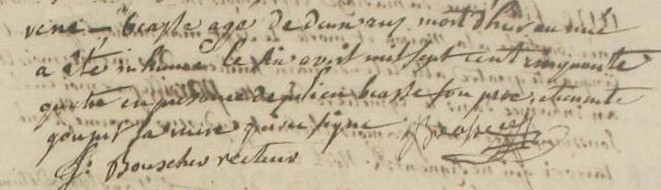 rené beasse agé de deux ans mort d'hier au soir
a été inhumé le six avril mil sept cent cinquante
quatre en presence de julien beasse son pere, et
goupil sa mere qui ne signe beasse
J: Bouscher recteur